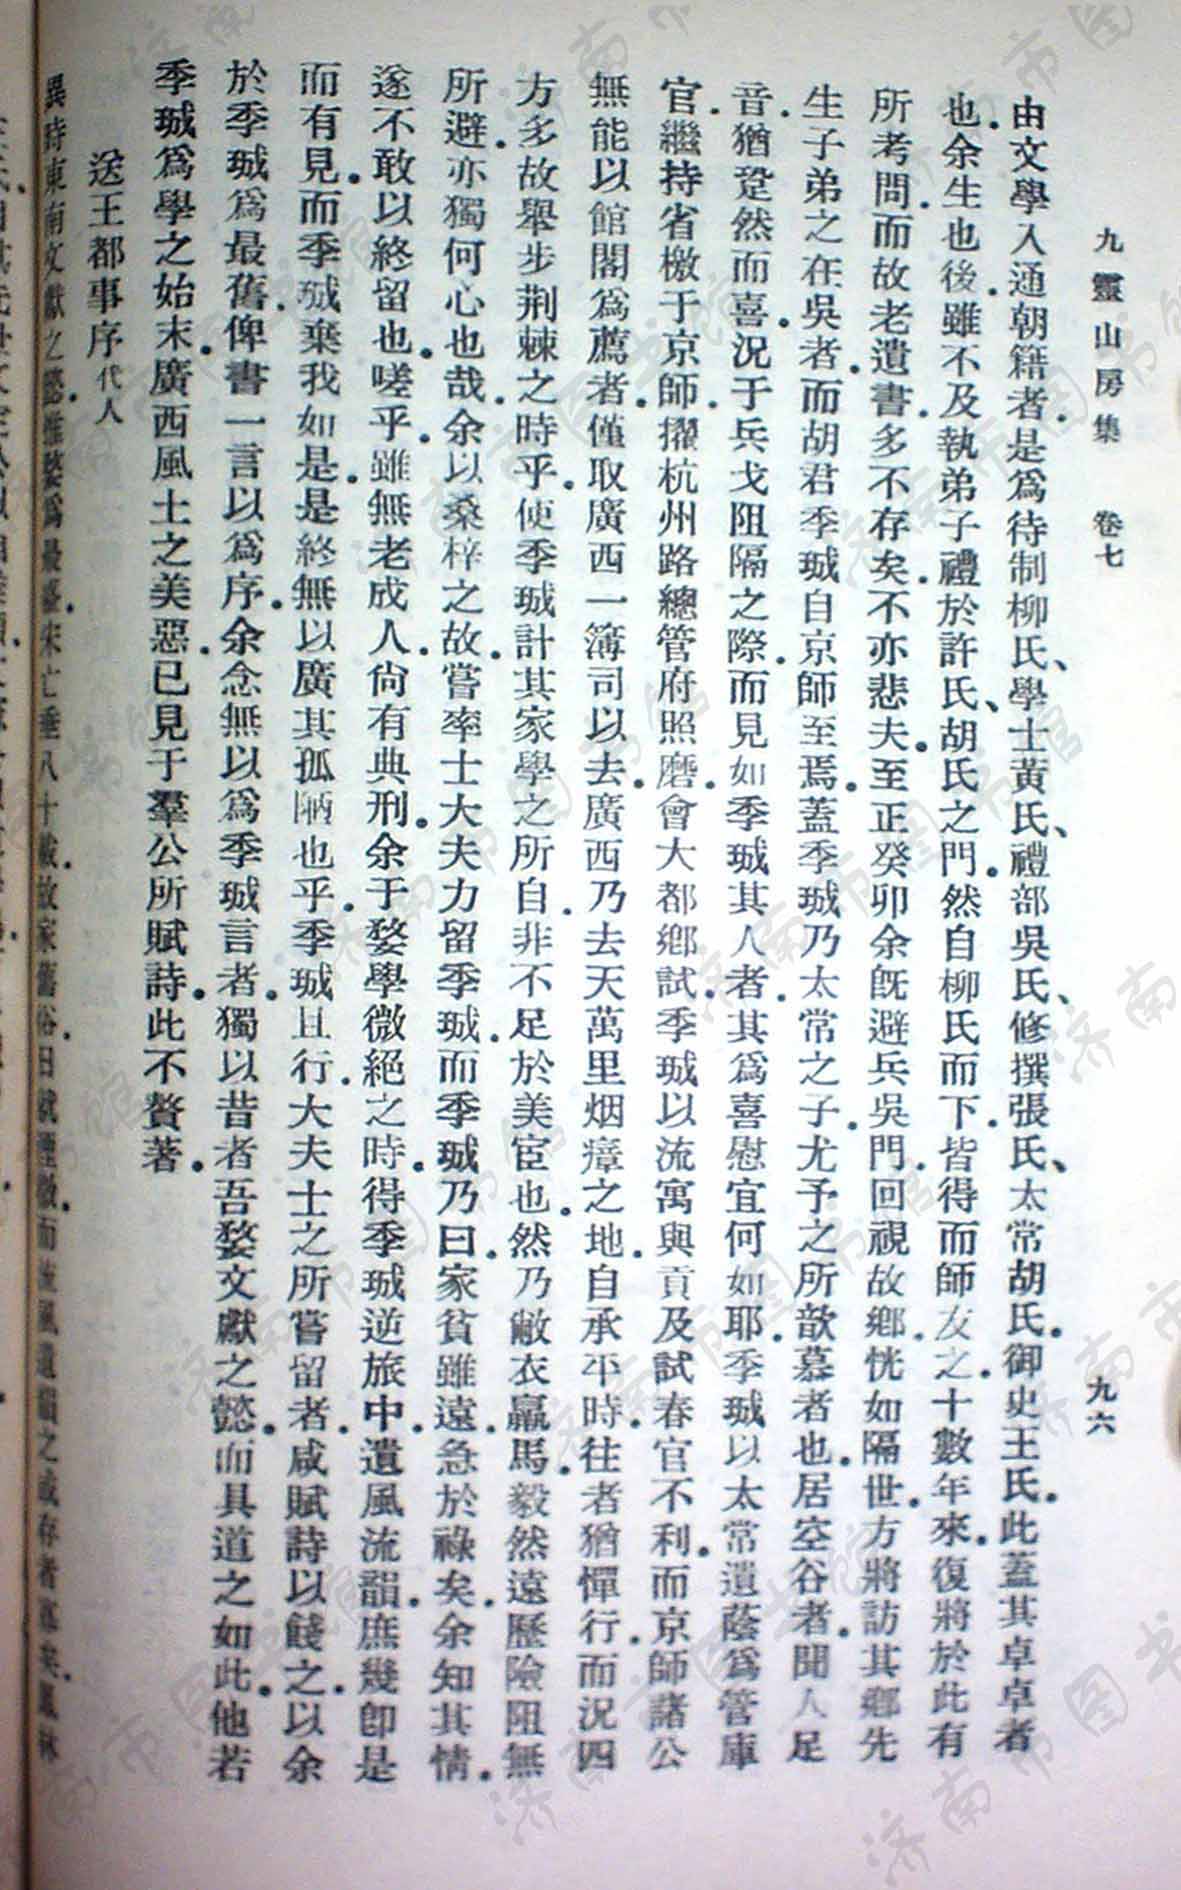 九靈山房集　卷七　九六
由文學入通朝籍者.是爲待制柳氏、學士黃氏、禮部吳氏、修撰張氏、太常胡氏.御史王氏.此蓋其卓卓者
也.余生也後.雖不及執弟子禮於許氏、胡氏之門.然自柳氏而下.皆得而師友之.十數年來.復將於此有
所考問.而故老遺書.多不存矣.不亦悲夫.至正癸卯.余旣避兵吳門.回視故鄉.恍如隔世.方將訪其鄉先
生子弟之在吳者.而胡君季珹自京師至焉.蓋季珹乃太常之子.尤予之所歆慕者也.居空谷者.聞人足
音.猶跫然而喜.況于兵戈阻隔之際.而見如季珹其人者.其爲喜慰宜何如耶.季珹以太常遺蔭爲管庫
官.繼持省檄于京師.擢杭州路總管府照磨.會大都鄉試.季珹以流寓與貢.及試春官不利.而京師諸公
無能以館閣爲薦者.僅取廣西一簿司以去.廣西乃去天萬里烟瘴之地.自承平時.往者猶憚行.而況四
方多故.舉步荆棘之時乎.使季珹計其家學之所自.非不足於美宦也.然乃敝衣羸馬.毅然遠歷險阻無
所避.亦獨何心也哉.余以桑梓之故.嘗率士大夫力留季珹.而季珹乃曰.家貧雖遠.急於祿矣.余知其情.
遂不敢以終留也.嗟乎.雖無老成人.尙有典刑.余于婺學微絕之時.得季珹逆旅中.遺風流韻.庶幾卽是
而有見.而季珹棄我如是.是終無以廣其孤陋也乎.季珹且行.大夫士之所嘗留者.咸賦詩以餞之.以余
於季珹爲最舊.俾書一言以爲序.余念無以爲季珹言者.獨以昔者吾婺文獻之懿.而具道之如此.他若
季珹爲學之始末.廣西風土之美惡.已見于羣公所賦詩.此不贅著.
送王都事序代人
異時東南文獻之懿.惟婺爲最盛.宋亡垂八十載.故家舊俗.日就湮微.而流風遺韻之或存者寡矣.